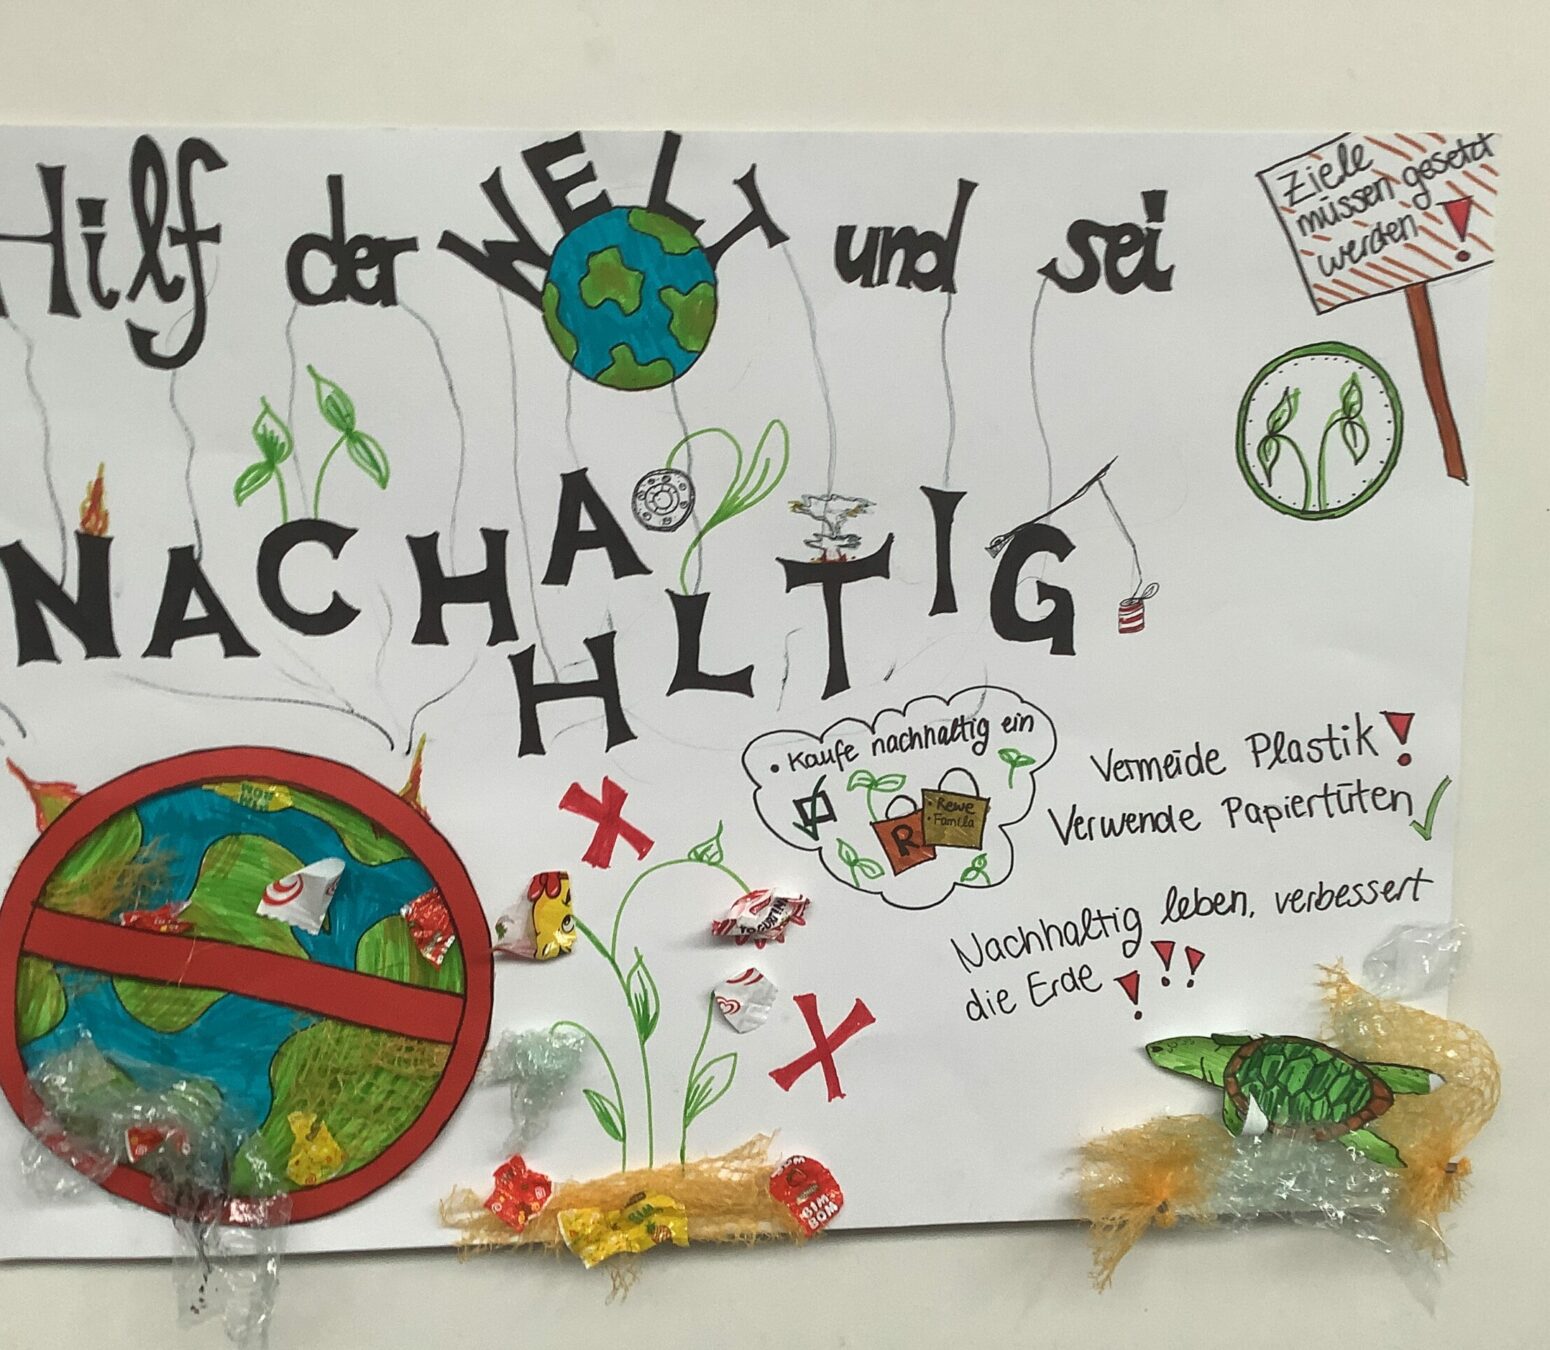 Hilf der WELT und sei
Ziele
müssen gesetzt
werden !
NACHHALTIG
• Kaufe nachhaltig ein
R
• Rewe
• Famila
Vermeide Plastik!
Verwende Papiertüten
Nachhaltig leben, verbessert
die Erde !!!
YOGURTINI
BIM
BOM
BIM